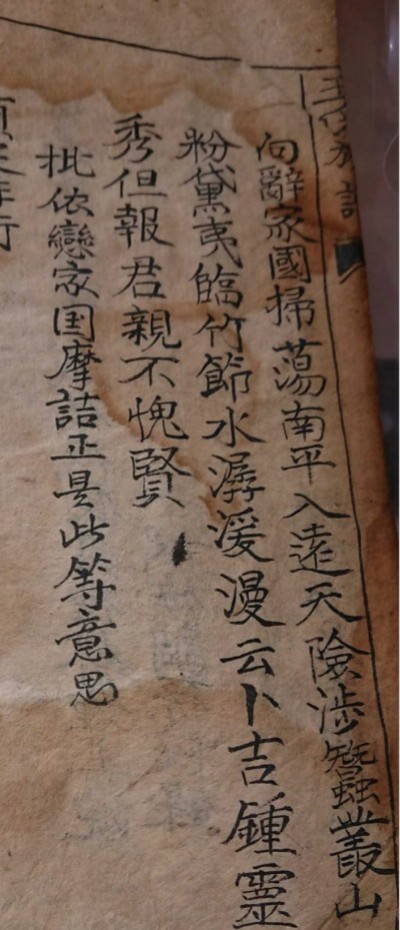 向辭家國掃蕩南平入遠天險涉蠶叢山
粉黛夷臨竹節水潺湲漫云卜吉鍾靈
秀但報君親不愧賢
批依戀家国摩詰正是此等意思